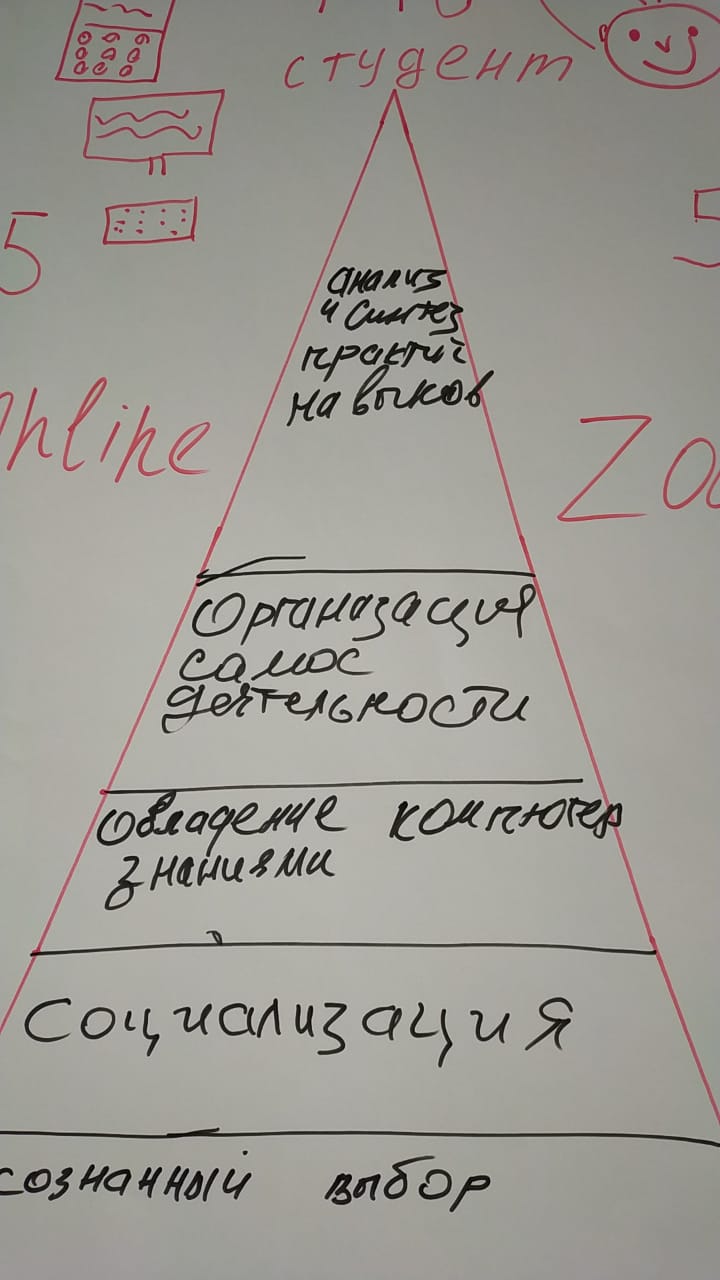 студент
5
анализ
и синтез
практич
навыков
online
Zoo
Организация
самос
деятельности
Овладение компютер
знаниями
Социализация
сознанный выбор